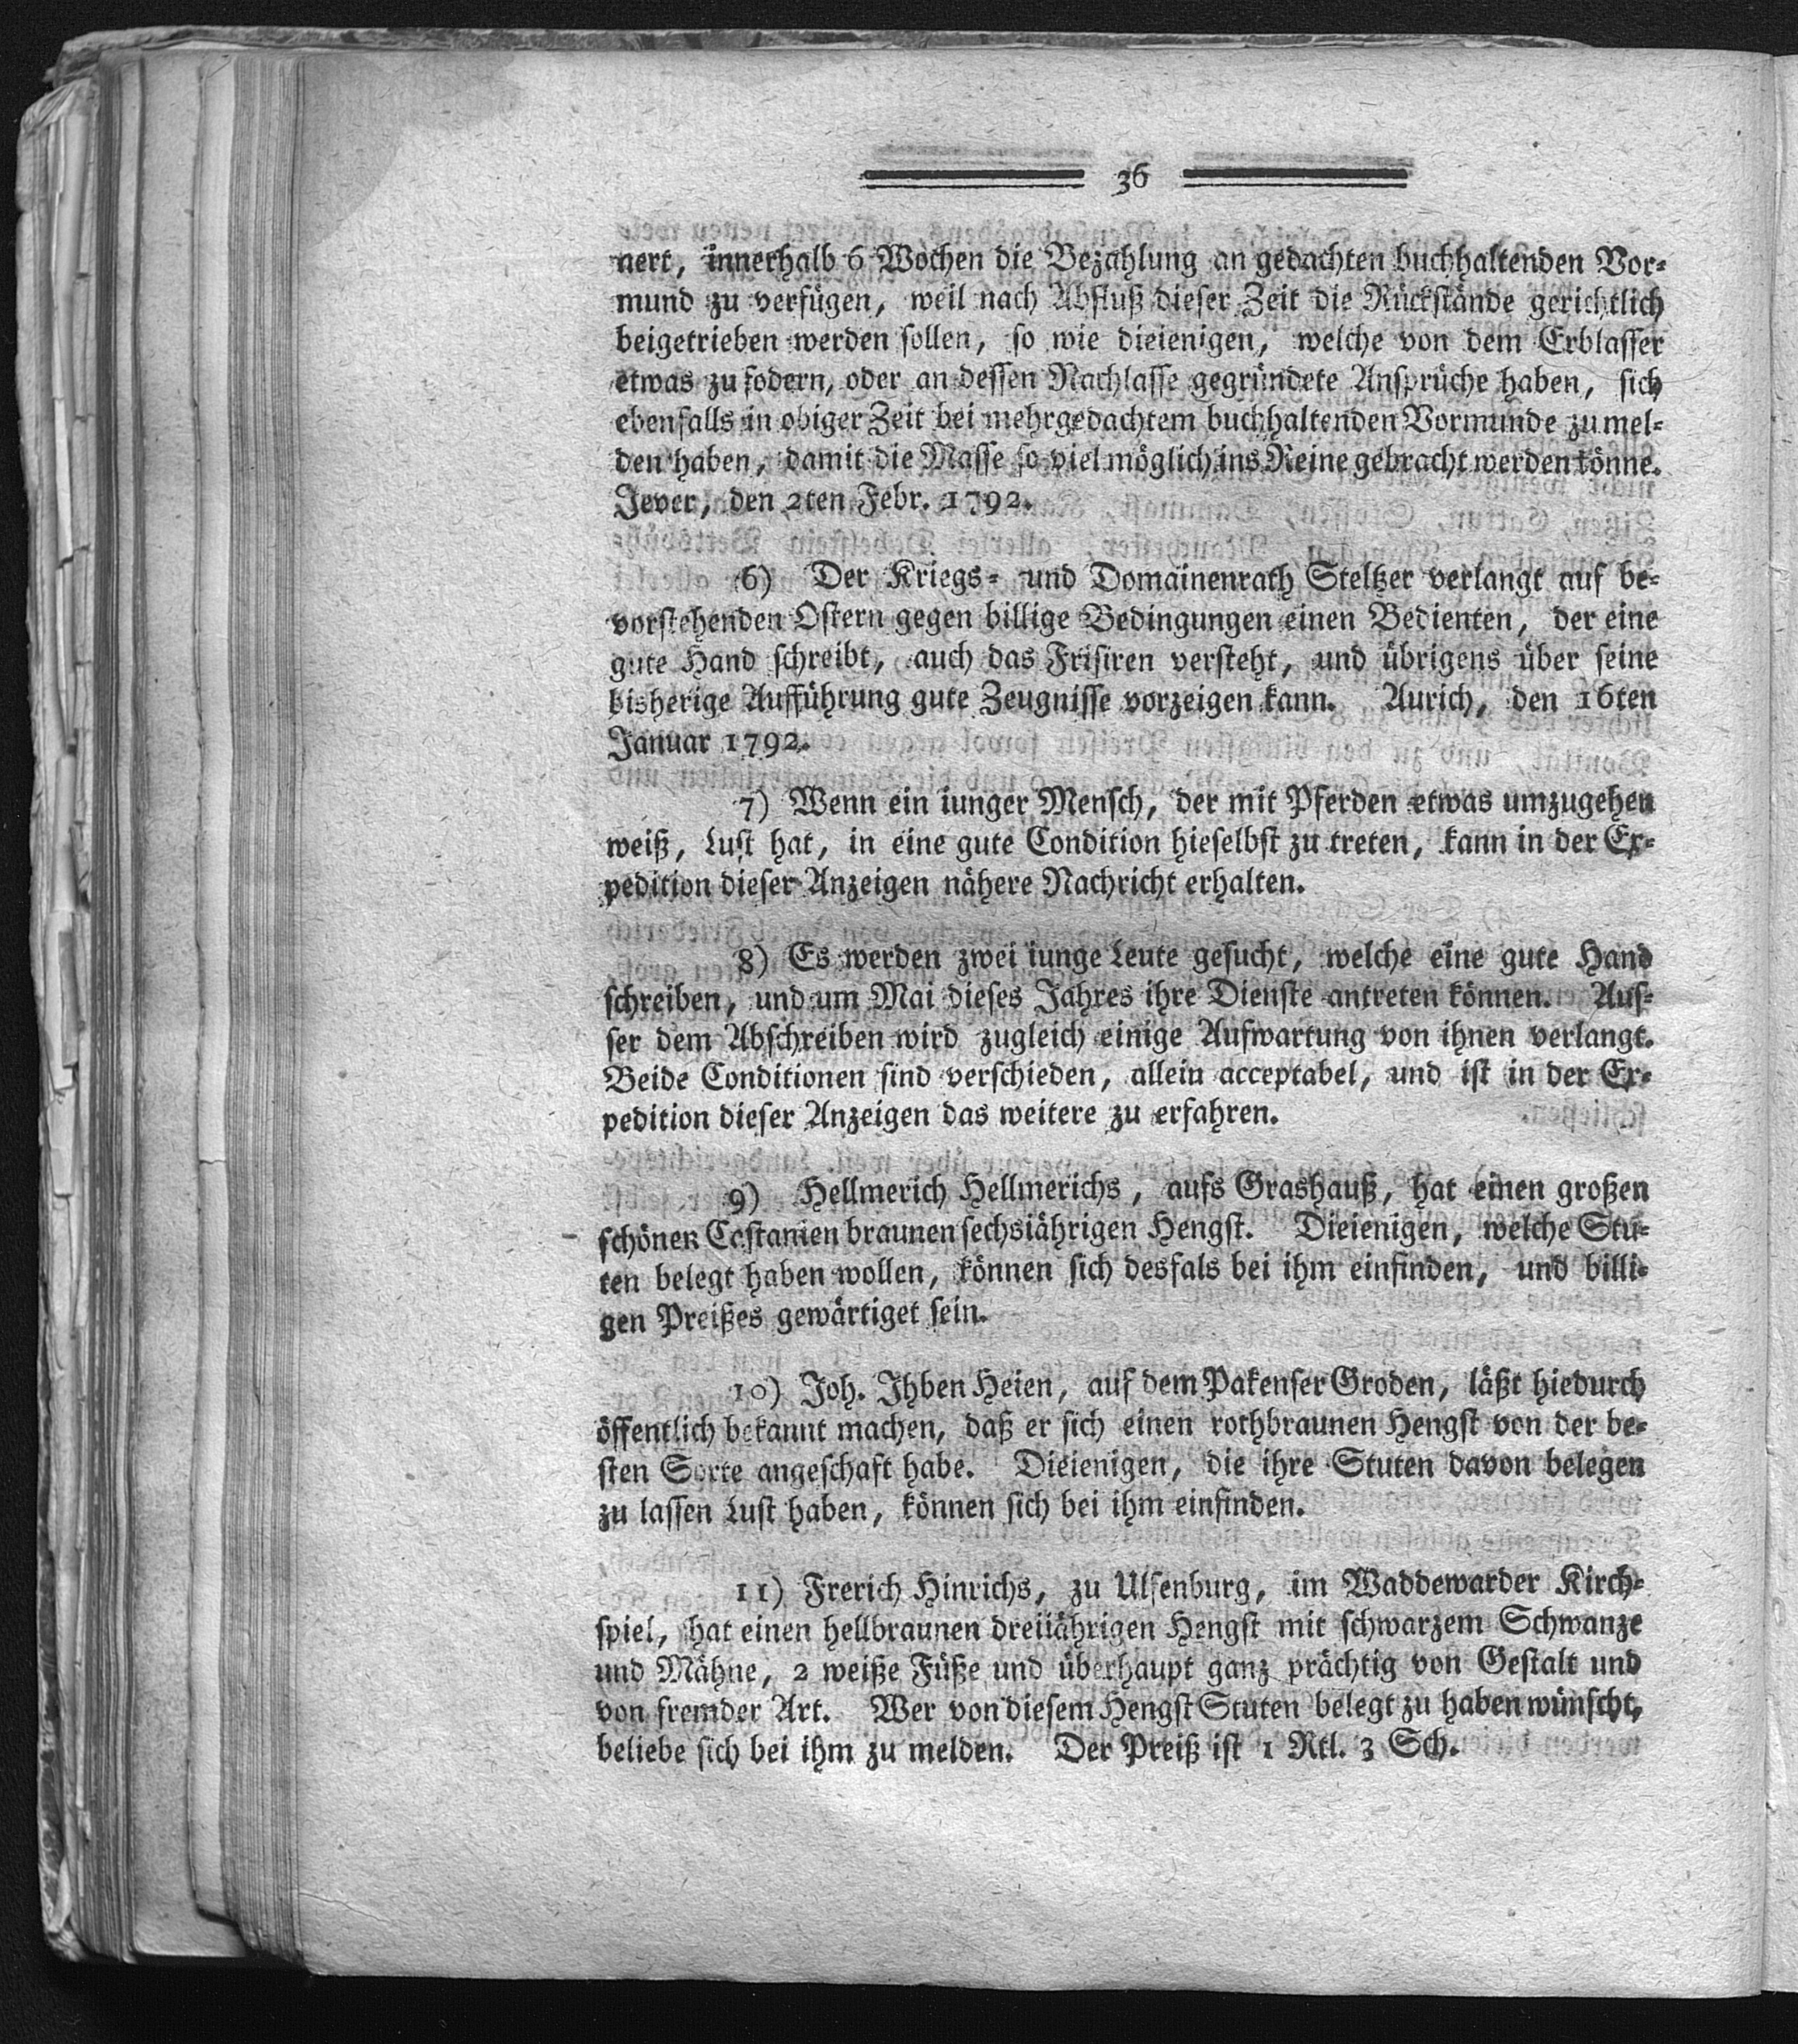 36
nert, innerhalb 6 Wochen die Bezahlung an gedachten buchhaltenden Vor-
mund zu verfügen, weil nach Abfluß dieser Zeit die Rückstände gerichtlich
beigetrieben werden sollen, so wie dieienigen, welche von dem Erblasser
etwas zu fodern, oder an dessen Nachlasse gegründete Ansprüche haben, sich
ebenfalls in obiger Zeit bei mehrgedachtem buchhaltenden Vormunde zu mel-
den haben, damit die Masse so viel möglich ins Reine gebracht werden könne.
Jever, den 2ten Febr. 1792.
6) Der Kriegs- und Domainenrath Steltzer verlangt auf be-
vorstehenden Ostern gegen billige Bedingungen einen Bedienten, der eine
gute Hand schreibt, auch das Frisiren versteht, und übrigens über seine
bisherige Aufführung gute Zeugnisse vorzeigen kann. Aurich, den 16ten
Januar 1792.
7) Wenn ein iunger Mensch, der mit Pferden etwas umzugehen
weiß, Lust hat, in eine gute Condition hieselbst zu treten, kann in der Ex-
pedition dieser Anzeigen nähere Nachricht erhalten.
8) Es werden zwei iunge Leute gesucht, welche eine gute Hand
schreiben, und um Mai dieses Jahres ihre Dienste antreten können. Aus-
ser dem Abschreiben wird zugleich einige Aufwartung von ihnen verlangt.
Beide Conditionen sind verschieden, allein acceptabel, und ist in der Ex-
pedition dieser Anzeigen das weitere zu erfahren.
9) Hellmerich Hellmerichs, aufs Grashauß, hat einen großen
schönen Castanien braunen sechsiährigen Hengst. Dieienigen, welche Stu-
ten belegt haben wollen, können sich desfals bei ihm einfinden, und billi-
gen Preißes gewärtiget sein.
10) Joh. Ihben Heien, auf dem Pakenser Groden, läßt hiedurch
öffentlich bekannt machen, daß er sich einen rothbraunen Hengst von der be-
sten Sorte angeschaft habe. Dieienigen, die ihre Stuten davon belegen
zu lassen Lust haben, können sich bei ihm einfinden.
11) Frerich Hinrichs, zu Ulsenburg, im Waddewarder Kirch-
spiel, hat einen hellbraunen dreiiährigen Hengst mit schwarzem Schwanze
und Mähne, 2 weiße Füße und überhaupt ganz prächtig von Gestalt und
von fremder Art. Wer von diesem Hengst Stuten belegt zu haben wünscht,
beliebe sich bei ihm zu melden. Der Preiß ist 1 Rtl. 3 Sch.